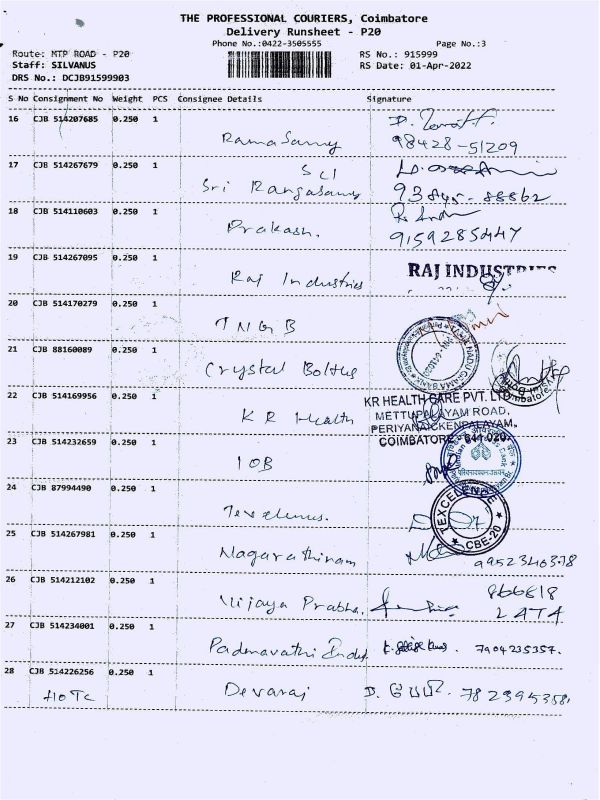 THE PROFESSIONAL COURIERS, Coimbatore
Delivery Runsheet - P20
Phone No.:0422-3505555 Page No.:3
Route: MTP ROAD - P20 RS No.: 915999
Staff: SILVANUS RS Date: 01-Apr-2022
DRS No.: DCJB91599903
S No Consignment No Weight PCS Consignee Details Signature
16 CJB 514207685 0.250 1
RamaSamy 98428-51209
17 CJB 514267679 0.250 1
Sri Rangasamy
18 CJB 514110603 0.250 1
Prakash. 9159285447
19 CJB 514267095 0.250 1
Raj Industries RAJ INDUSTRIES
20 CJB 514170279 0.250 1
TNGB
TAMIL NADU GRAMA BANK
21 CJB 88160089 0.250 1
Crystal
Coimbatore
22 CJB 514169956 0.250 1
KR Health
KR HEALTH CARE PVT. LTD
METTUPALAYAM ROAD,
PERIYANAICKENPALAYAM,
COIMBATORE - 641 020.
23 CJB 514232659 0.250 1
IOB
24 CJB 87994490 0.250 1
TEXCEL
CBE-20
25 CJB 514267981 0.250 1
Nagarathinam 9952340378
26 CJB 514212102 0.250 1
Vijaya Prabha.
LATA
27 CJB 514234001 0.250 1
Padmavathi 7904235357.
28 CJB 514226256 0.250 1
Devaraj D.